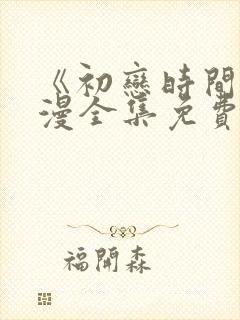 《初戀時間
漫全集免費
福開森